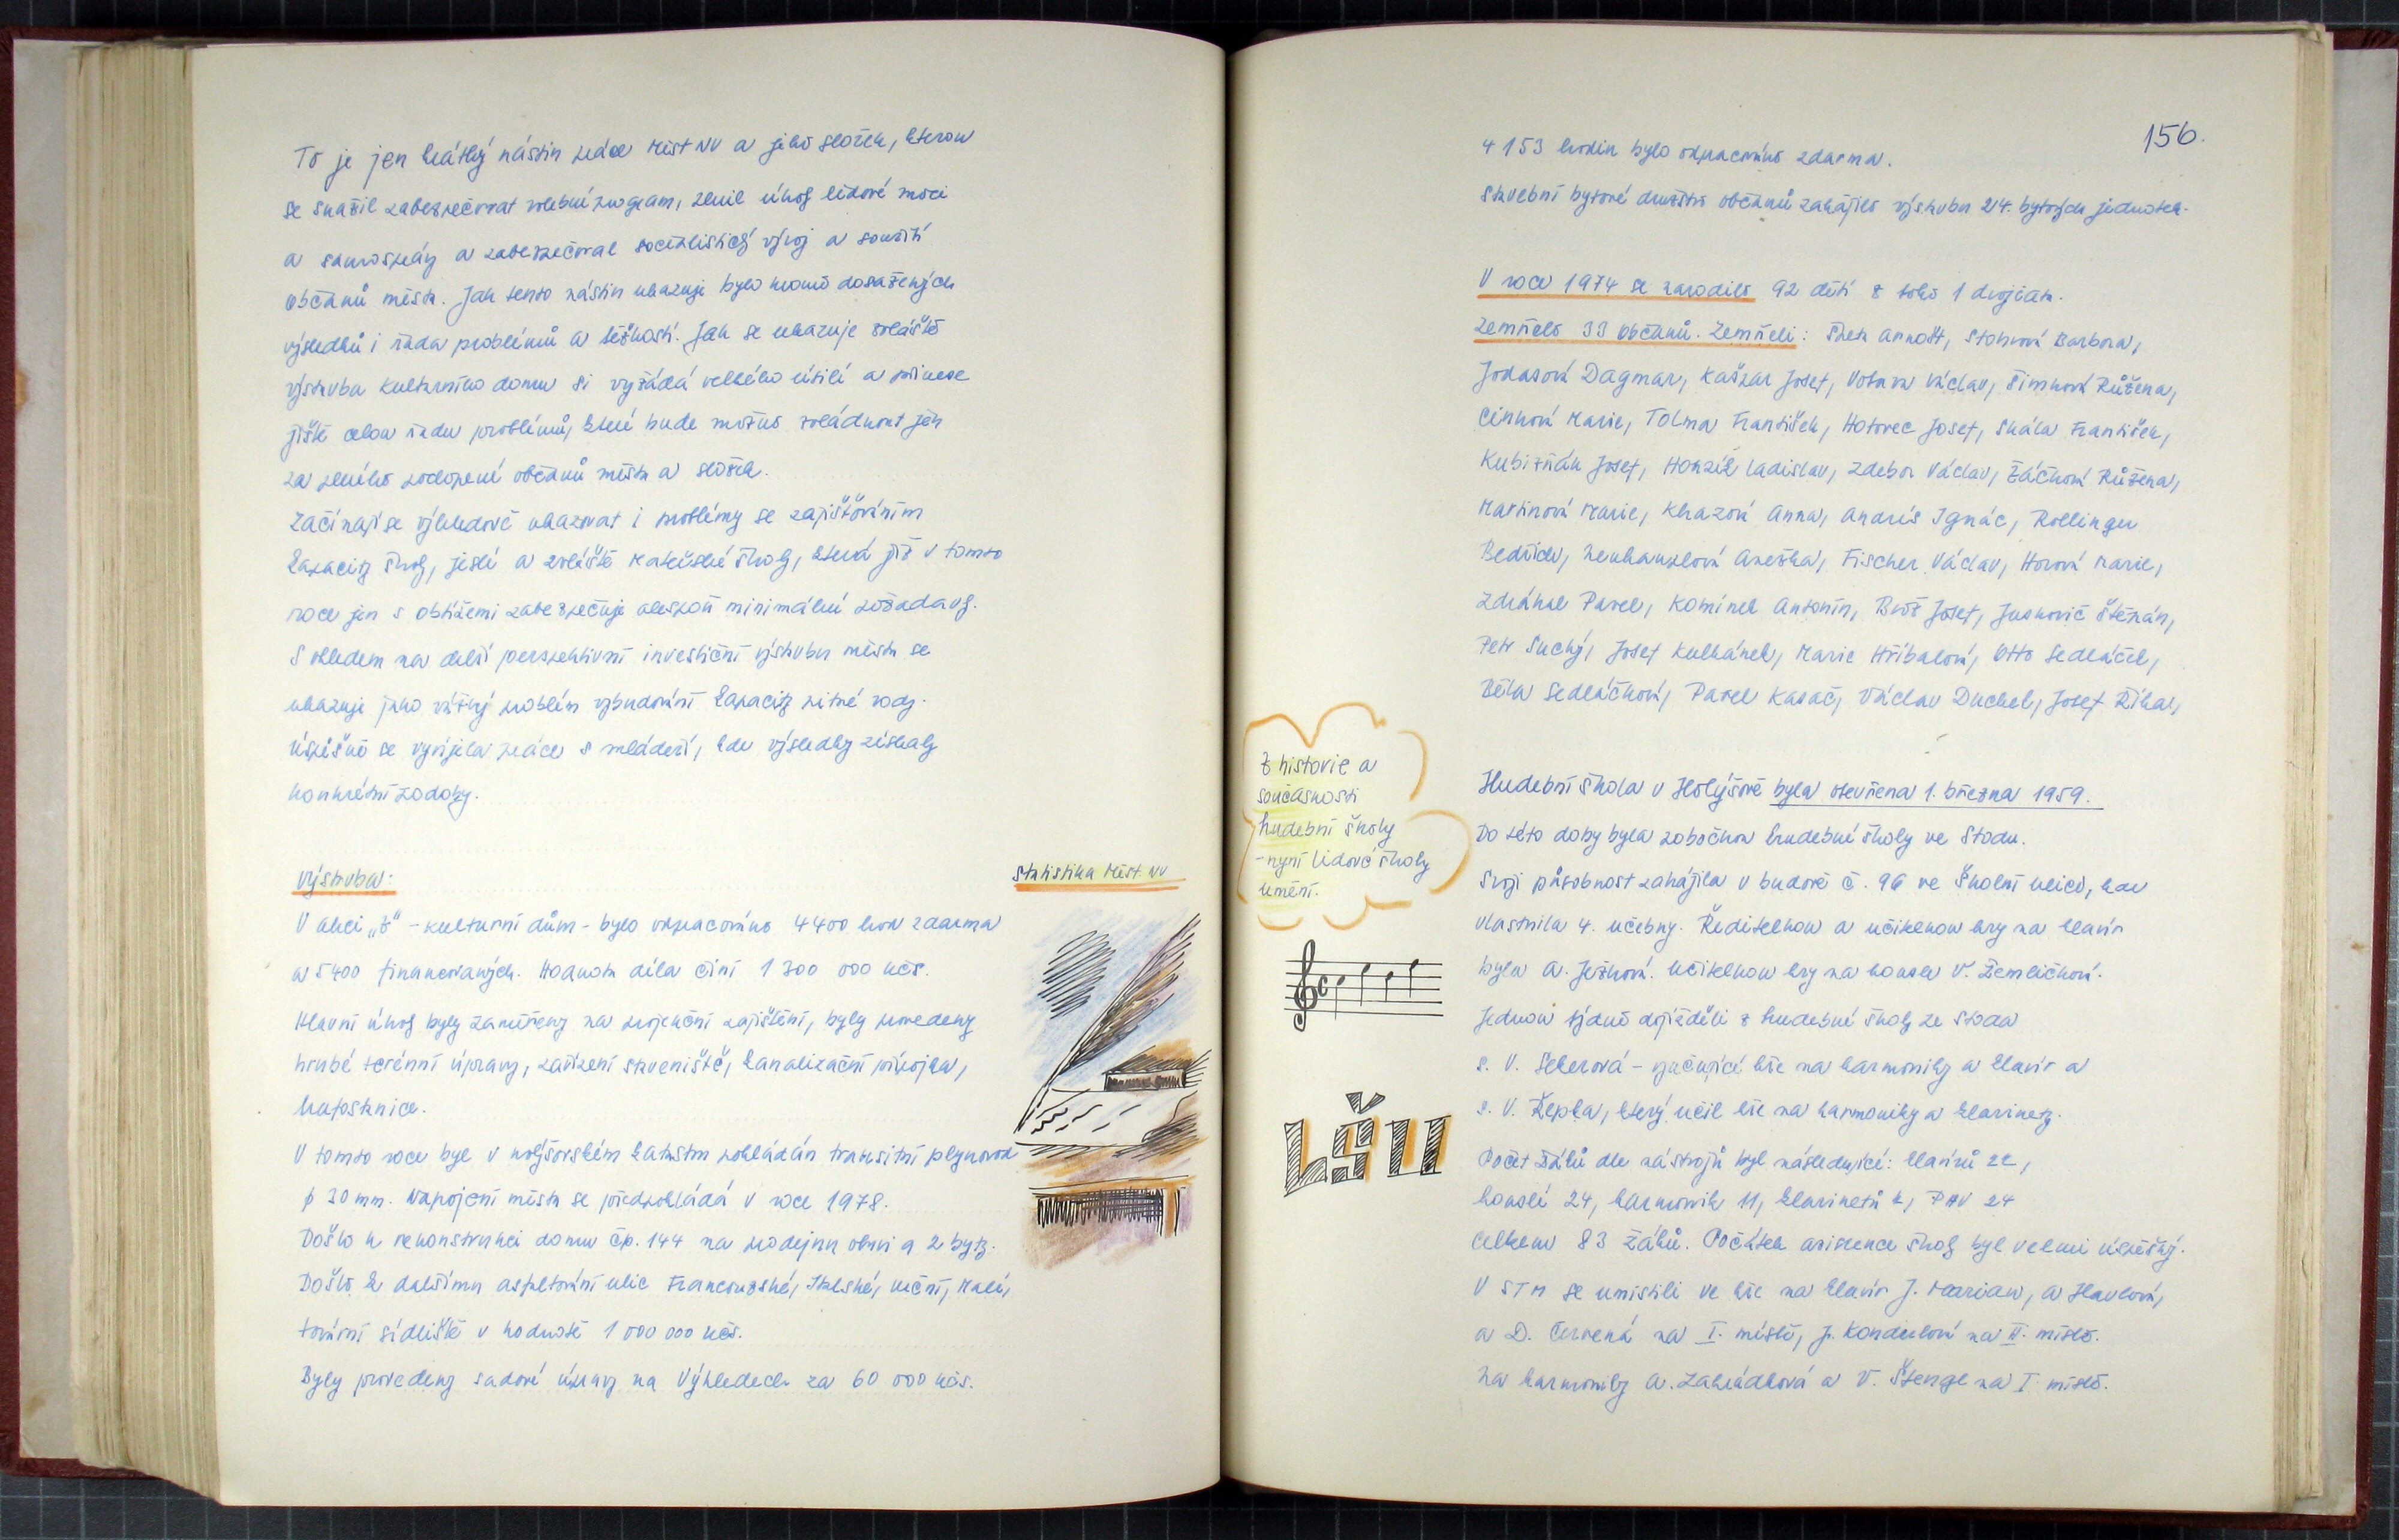 To je jen krátký nástin práce Měst NV a jeho složek, kterou
se snažil zabezpečovat volební program, plnil úkoly lidové moci
a samosprávy a zabezpečoval socialistický vývoj a soužití
občanů města. Jak tento nástin ukazuje bylo kromě dosažených
výsledků i řada problémů a těžkostí. Jak se ukazuje zvláště
výstavba kulturního domu si vyžádá velkého úsilí a přinese
ještě celou řadu problémů, které bude možno zvládnout jen
za plného pochopení občanů města a složek.
Začínají se výhledově ukazovat i problémy se zajišťováním
kapacity školy, jeslí a zvláště mateřské školy, která již v tomto
roce jen s obtížemi zabezpečuje alespoň minimální požadavky.
S ohledem na další perspektivní investiční výstavbu města se
ukazuje jako vážný problém vybudování kapacity pitné vody.
Úspěšně se vyvíjela práce s mládeží, kde výsledky získaly
konkrétní podoby.
Výstavba:
Statistika Měst. NV
V akci „Z" - kulturní dům - bylo odpracováno 4400 hod zdarma
a 5400 financovaných. Hodnota díla činí 1 300 000 Kčs.
Hlavní úkoly byly zaměřeny na projekční zajištění, byly provedeny
hrubé terénní úpravy, zařízení staveniště, kanalizační přípojka,
trafostanice.
V tomto roce byl v holýšovském katastru pokládán transitní plynovod
φ 20 mm. Napojení města se předpokládá v roce 1978.
Došlo k rekonstrukci domu čp. 144 na prodejnu obuvi a 2 byty.
Došlo k dalšímu asfaltování ulic Francouzské, Italské, Luční, Malé,
tovární sídliště v hodnotě 1 000 000 Kčs.
Byly provedeny sadové úpravy na Výhledech za 60 000 Kčs.
156.
4 153 hodin bylo odpracováno zdarma.
Stavební bytové družstvo občanů zahájilo výstavbu 24. bytových jednotek.
V roce 1974 se narodilo 92 dětí z toho 1 dvojčata.
Zemřelo 33 občanů. Zemřeli: Arnošt, Barbora,
Jonasová Dagmar, Kašpar Josef, Votava Václav, Šimková Růžena,
Marie, Tolma František, Hotovec Josef, Skála František,
Kubizňák Josef, Honzík Ladislav, Zdebor Václav, Žáčková Růžena,
Martinová Marie, Anna, Andrís Ignác, Rollinger
Bedřich, Anežka, Fischer Václav, Horová Marie,
Zdráhal Pavel, Komínek Antonín, Brož Josef, Štěpán,
Petr Suchý, Josef Kulhánek, Marie Hříbalová, Otto Sedláček,
Běla Sedláčková, Pavel Kasač, Václav Duchek, Josef Říha,
Z historie a
současnosti
hudební školy
- nyní lidové školy
umění.
Hudební škola v Holýšově byla otevřena 1. března 1959.
Do této doby byla pobočkou hudební školy ve Stodu.
Svoji působnost zahájila v budově č. 96 ve Školní ulici, kde
vlastnila 4. učebny. Ředitelkou a učitelkou hry na klavír
byla A. Ježková. Učitelkou hry na housle V. Žemličková.
Jednou týdně dojížděli z hudební školy ze Stoda
s. V. Sekerová - vyučující hře na harmoniky a klavír a
s. V. Řepka, který učil hře na harmoniky a klarinety.
LŠU
Počet žáků dle nástrojů byl následující: klavírů 22,
houslí 24, harmonik 11, klarinetů 2, PHV 24
celkem 83 žáků. Počátek existence školy byl velmi úspěšný.
V STM se umístili ve hře na klavír J. Marian, A Havlová,
a D. Červená na I. místě, J. Konderlová na II. místě.
Na harmoniky A. Zahrádková a V. Štengl na I místě.